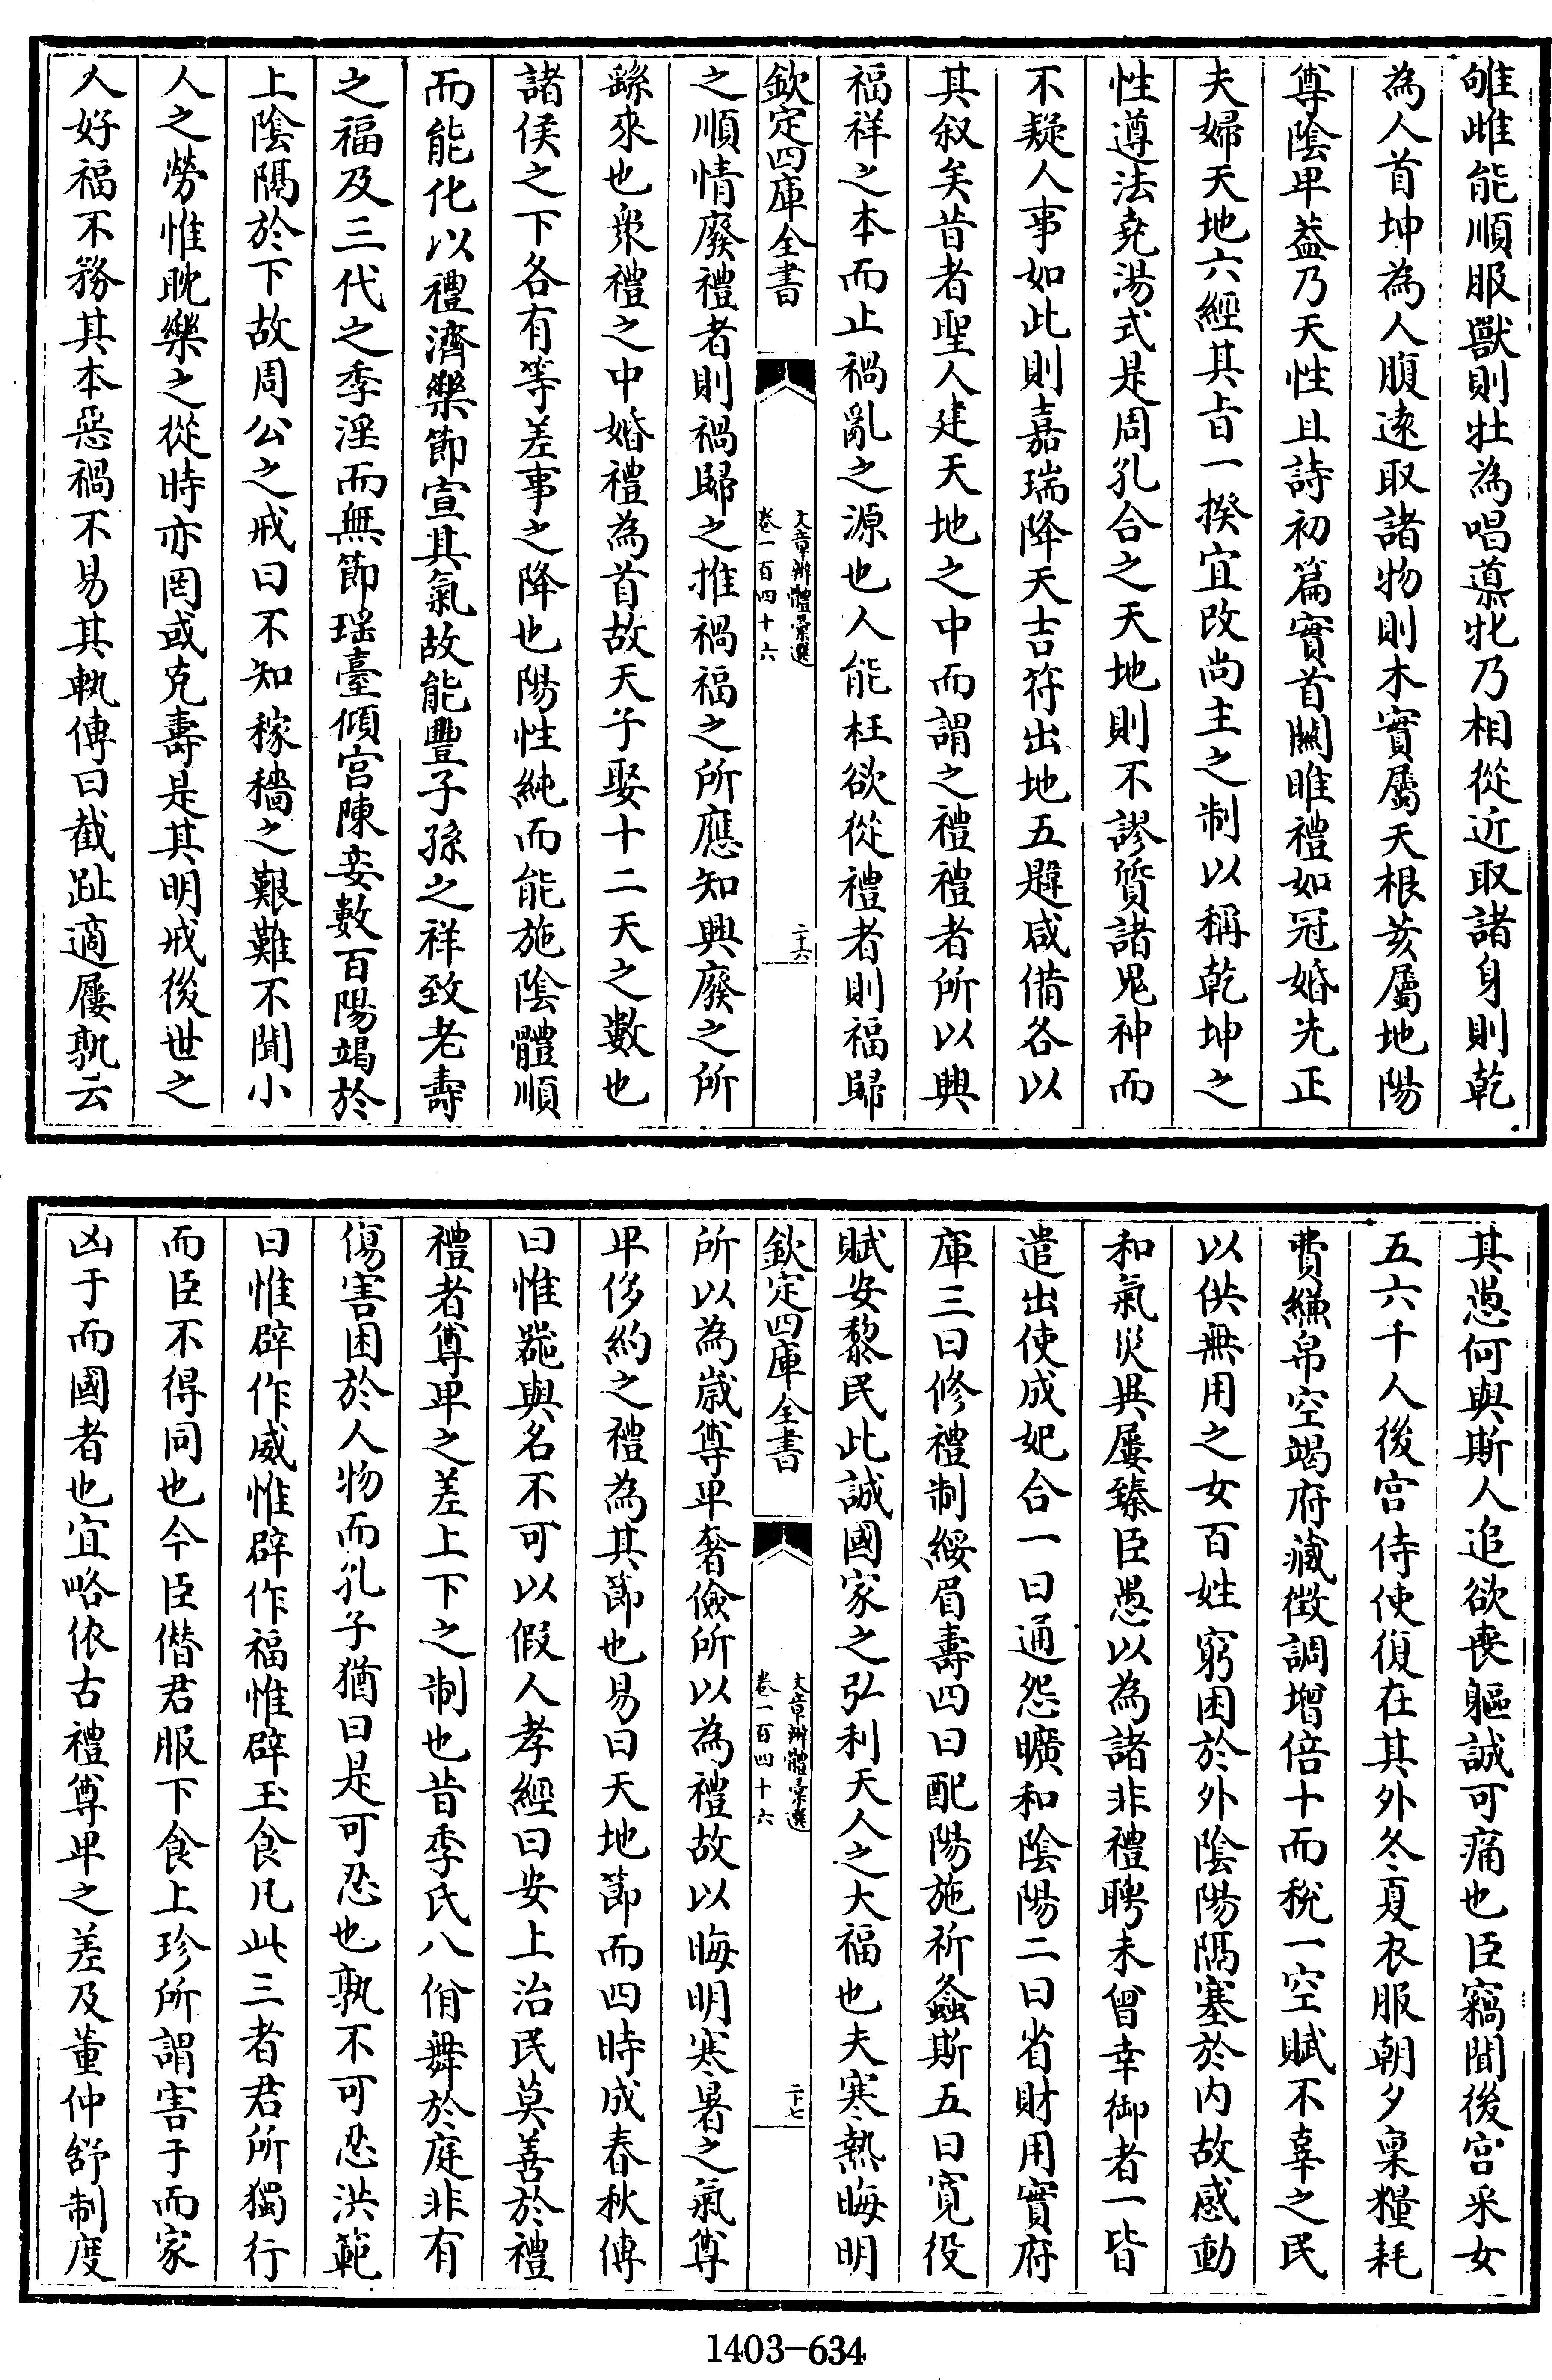 雊雌能順服獸則牡為唱導牝乃相從近取諸身則乾
為人首坤為人腹遠取諸物則木實屬天根荄屬地陽
尊陰卑蓋乃天性且詩初篇實首關雎禮如冠婚先正
夫婦天地六經其㫖一揆宜改尚主之制以稱乾坤之
性遵法堯湯式是周孔合之天地則不謬質諸鬼神而
不疑人事如此則嘉瑞降天吉符出地五韙咸備各以
其叙矣昔者聖人建天地之中而謂之禮禮者所以興
福祥之本而止禍亂之源也人能枉欲從禮者則福歸
欽定四庫全書
文章辨體彙選
卷一百四十六
二十六
之順情廢禮者則禍歸之推禍福之所應知興廢之所
繇來也衆禮之中婚禮為首故天子娶十二天之數也
諸侯之下各有等差事之降也陽性純而能施陰體順
而能化以禮濟樂節宣其氣故能豐子孫之祥致老壽
之福及三代之季淫而無節瑶臺傾宫陳妾數百陽竭於
上陰隔於下故周公之戒曰不知稼穡之艱難不聞小
人之勞惟耽樂之從時亦罔或克壽是其明戒後世之
人好福不務其本惡禍不易其軌傳曰截趾適屨孰云
其愚何與斯人追欲喪軀誠可痛也臣竊聞後宫采女
五六千人後宫侍使復在其外冬夏衣服朝夕稟糧耗
費縑帛空竭府藏徴調增倍十而稅一空賦不辜之民
以供無用之女百姓窮困於外陰陽隔塞於内故感動
和氣災異屢臻臣愚以為諸非禮聘未曾幸御者一皆
遣出使成妃合一曰通怨曠和陰陽二曰省財用實府
庫三曰修禮制綏眉壽四曰配陽施祈螽斯五曰寛役
賦安黎民此誠國家之弘利天人之大福也夫寒熱晦明
欽定四庫全書
文章辨體彙選
卷一百四十六
二十七
所以為歳尊卑奢儉所以為禮故以晦明寒暑之氣尊
卑侈約之禮為其節也易曰天地節而四時成春秋傳
曰惟器與名不可以假人孝經曰安上治民莫善於禮
禮者尊卑之差上下之制也昔季氏八佾舞於庭非有
傷害困於人物而孔子猶曰是可忍也孰不可忍洪範
曰惟辟作威惟辟作福惟辟玉食凡此三者君所獨行
而臣不得同也今臣僭君服下食上珍所謂害于而家
凶于而國者也宜略依古禮尊卑之差及董仲舒制度
1403-634